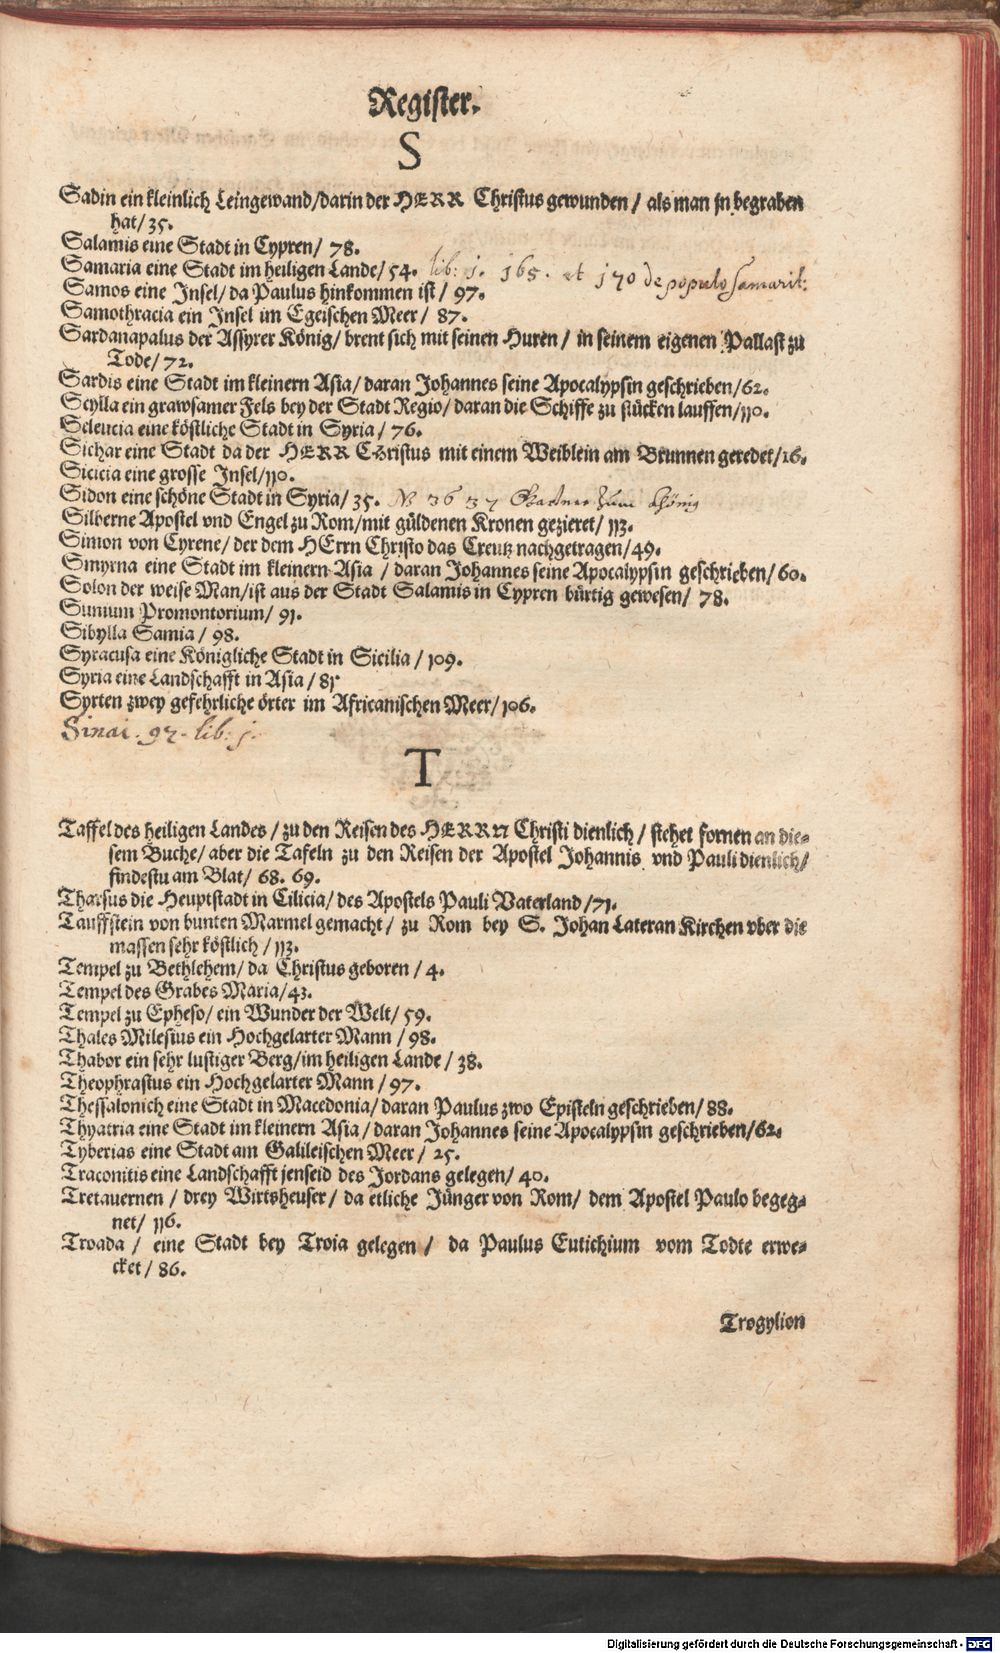 Register.
S
Sadin ein kleinlich Leingewand/darin der HERR Christus gewunden / als man jn begraben
hat/ 35.
Salamis eine Stadt in Cypren/ 78.
Samaria eine Stadt im heiligen Lande/ 54. lib: 1. 165. et 170 de populo Samarit:
Samos eine Insel/ da Paulus hinkommen ist / 97.
Samothracia ein Insel im Egeischen Meer / 87.
Sardanapalus der Assyrer König/ brent sich mit seinen Huren / in seinem eigenen Pallast zu
Tode/ 72.
Sardis eine Stadt im kleinern Asia/ daran Johannes seine Apocalypsin geschrieben/62.
Scylla ein grawsamer Fels bey der Stadt Regio/ daran die Schiffe zu stücken lauffen/110.
Seleucia eine köstliche Stadt in Syria / 76.
Sichar eine Stadt da der HERR Christus mit einem Weiblein am Brunnen geredet/16.
Sicicia eine grosse Insel/110.
Sidon eine schöne Stadt in Syria/ 35. 36 37 zum
Silberne Apostel vnd Engel zu Rom/mit güldenen Kronen gezieret/ 113.
Simon von Cyrene/ der dem HErrn Christo das Creutz nachgetragen/49.
Smyrna eine Stadt im kleinern Asia / daran Johannes seine Apocalypsin geschrieben/ 60.
Solon der weise Man/ist aus der Stadt Salamis in Cypren bürtig gewesen/ 78.
Sunium Promontorium/ 91.
Sibylla Samia / 98.
Syracusa eine Königliche Stadt in Sicilia / 109.
Syria eine Landschafft in Asia / 81
Syrten zwey gefehrliche örter im Africanischen Meer/ 106.
Sinai. 92. lib: 1.
T
Taffel des heiligen Landes / zu den Reisen des HERRN Christi dienlich / stehet fornen an die-
sem Buche/ aber die Tafeln zu den Reisen der Apostel Johannis vnd Pauli dienlich/
findestu am Blat/ 68. 69.
Tharsus die Heuptstadt in Cilicia/ des Apostels Pauli Vaterland /71.
Tauffstein von bunten Marmel gemacht/ zu Rom bey S. Johan Lateran Kirchen vber die
massen sehr köstlich / 113.
Tempel zu Bethlehem/ da Christus geboren / 4.
Tempel des Grabes Maria/43.
Tempel zu Epheso/ ein Wunder der Welt/ 59.
Thales Milesius ein Hochgelarter Mann / 98.
Thabor ein sehr lustiger Berg/im heiligen Lande / 38.
Theophrastus ein Hochgelarter Mann / 97.
Thessalonich eine Stadt in Macedonia/ daran Paulus zwo Episteln geschrieben/ 88.
Thyatria eine Stadt im kleinern Asia/ daran Johannes seine Apocalypsin geschrieben/62.
Tyberias eine Stadt am Galileischen Meer / 25.
Traconitis eine Landschafft jenseid des Jordans gelegen/ 40.
Tretauernen / drey Wirtsheuser / da etliche Jünger von Rom/ dem Apostel Paulo begeg-
net/ 116.
Troada / eine Stadt bey Troia gelegen / da Paulus Eutichium vom Todte erwe-
cket / 86.
Trogylion
Digitalisierung gefördert durch die Deutsche Forschungsgemeinschaft - DFG